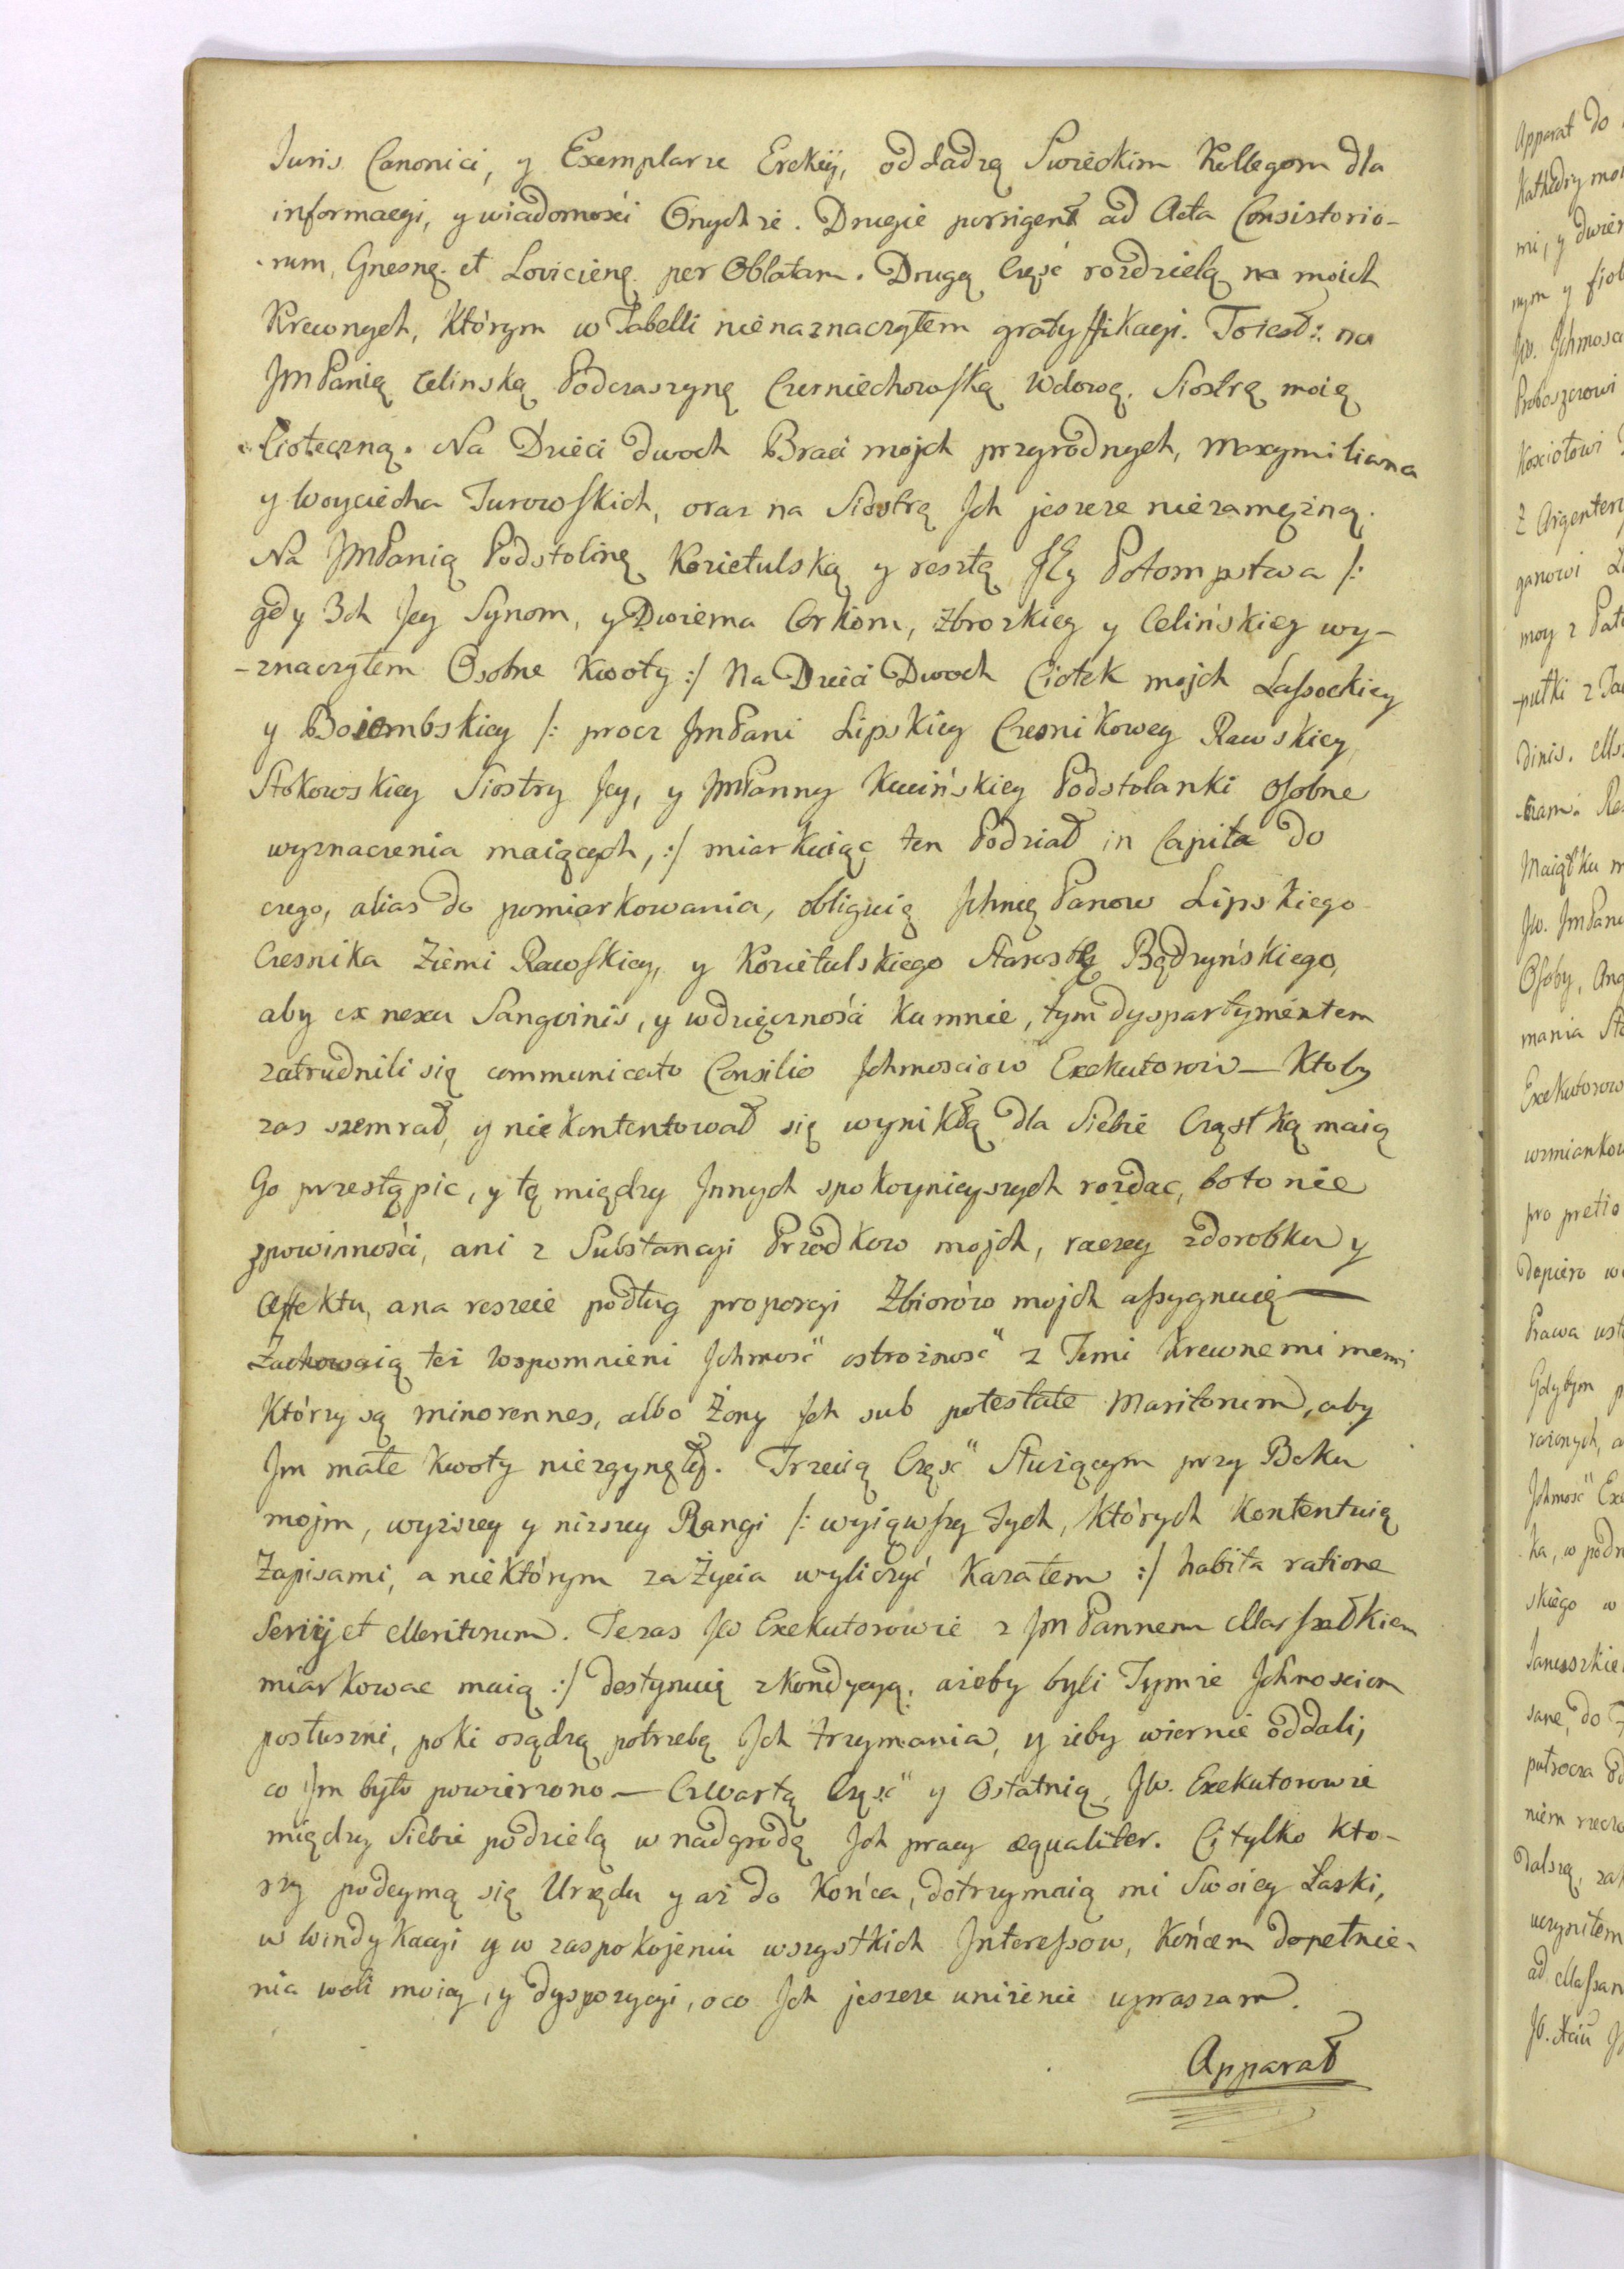 Juris Canonici, y Exemplarze Erekcyi, oddadzą Swieckim Kollegom dla
informacyi, y wiadomości Onychże. Drugie porrigent ad Acta Consistorio-
-rum, Gnesnę. et Lovicienę. per Oblatam. Drugą Część rozdzielą na moich
Krewnych, Którym w Tabelli nienaznaczyłem gratyffikacyi. Toiest: na
JmPanią Celinską Podczaszynę Czerniechowską Wdowę. Siostrę moię
Cioteczną. Na Dzieci dwoch Braci mojch przyrodnych, Maxymiliana
y Woyciecha Turowskich, oraz na Siostrę Jch jeszcze niezamężną.
Na JmPanią Podstolinę Kozietulską y resztę JEy Potompstwa /:
gdy 3ch Jey Synom, y Dwiema Corkom, Zbrozkiey y Celińskiey wy-
-znaczyłem Osobne Kwoty :/ Na Dzieci Dwoch Ciotek mojch Lassockiey
y Boiembskiey /: procz JmPani Lipskiey Czesnikowey Rawskiey,
Stokowskiey Siostry Jey, y JmPanny Kucińskiey Podstolanki osobne
wyznaczenia maiących, :/ miarkuiąc ten Podział in Capita do
czego, alias do pomiarkowania, obliguię Jchmę Panow Lipskiego
Czesnika Ziemi Rawskiey, y Kozietulskiego Starostę Bądzyńskiego,
aby ex nexu Sangvinis, y wdzięczności kumnie, tym dyspartymentem
zatrudnili się communicato Consilio Jchmosciow Exekutorow — Ktoby
zas szemrał, y niekontentował się wynikłą dla Siebie Cząstką maią
Go przestąpic, y tę między Jnnych spokoynieyszych rozdac, boto nie
zpowinności, ani z Substancyi Przodkow mojch, raczey zdorobku y
affektu, ana reszcie podług proporcyi Zbiorów mojch assygnuię —
Zachowaią też wspomnieni Jchmość ostrożność z Temi Krewnemi memi
Którzy są minorennes, albo Żony Jch sub potestate Maritorum, aby
Jm małe Kwoty niezgynęły. Trzecią Część Służącym przy Boku
mojm, wyższey y niższey Rangi /: wyiąwszy Tych, Których Kontentuię
Zapisami, a niektórym zażycia wyliczyć Kazałem :/ habita ratione
Servÿ et Meritorum. Tezas Jw Exekutorowie z Jm Pannem Marszałkiem
miarkowac maią :/ destynuię zkondycyą, ażeby byli Tymże Jchmosciom
posłuszni, poki osądzą potrzebę Jch trzymania, y żeby wiernie oddali,
co Jm było powierzono — Czwartą Część y Ostatnią, Jw. Exekutorowie
między Siebie podzielą w nadgrodę Jch pracy æqualiter. Ci tylko Kto-
rzy podeymą się Urzędu y aż do Końca, dotrzymaią mi Swoiey Łaski,
w Windykacyi y w zaspokojeniu wszystkich Jnteressow, Końcem dopełnie-
nia woli moiey, y dyspozycyi, oco Jch jeszcze uniżenie upraszam.
Apparat